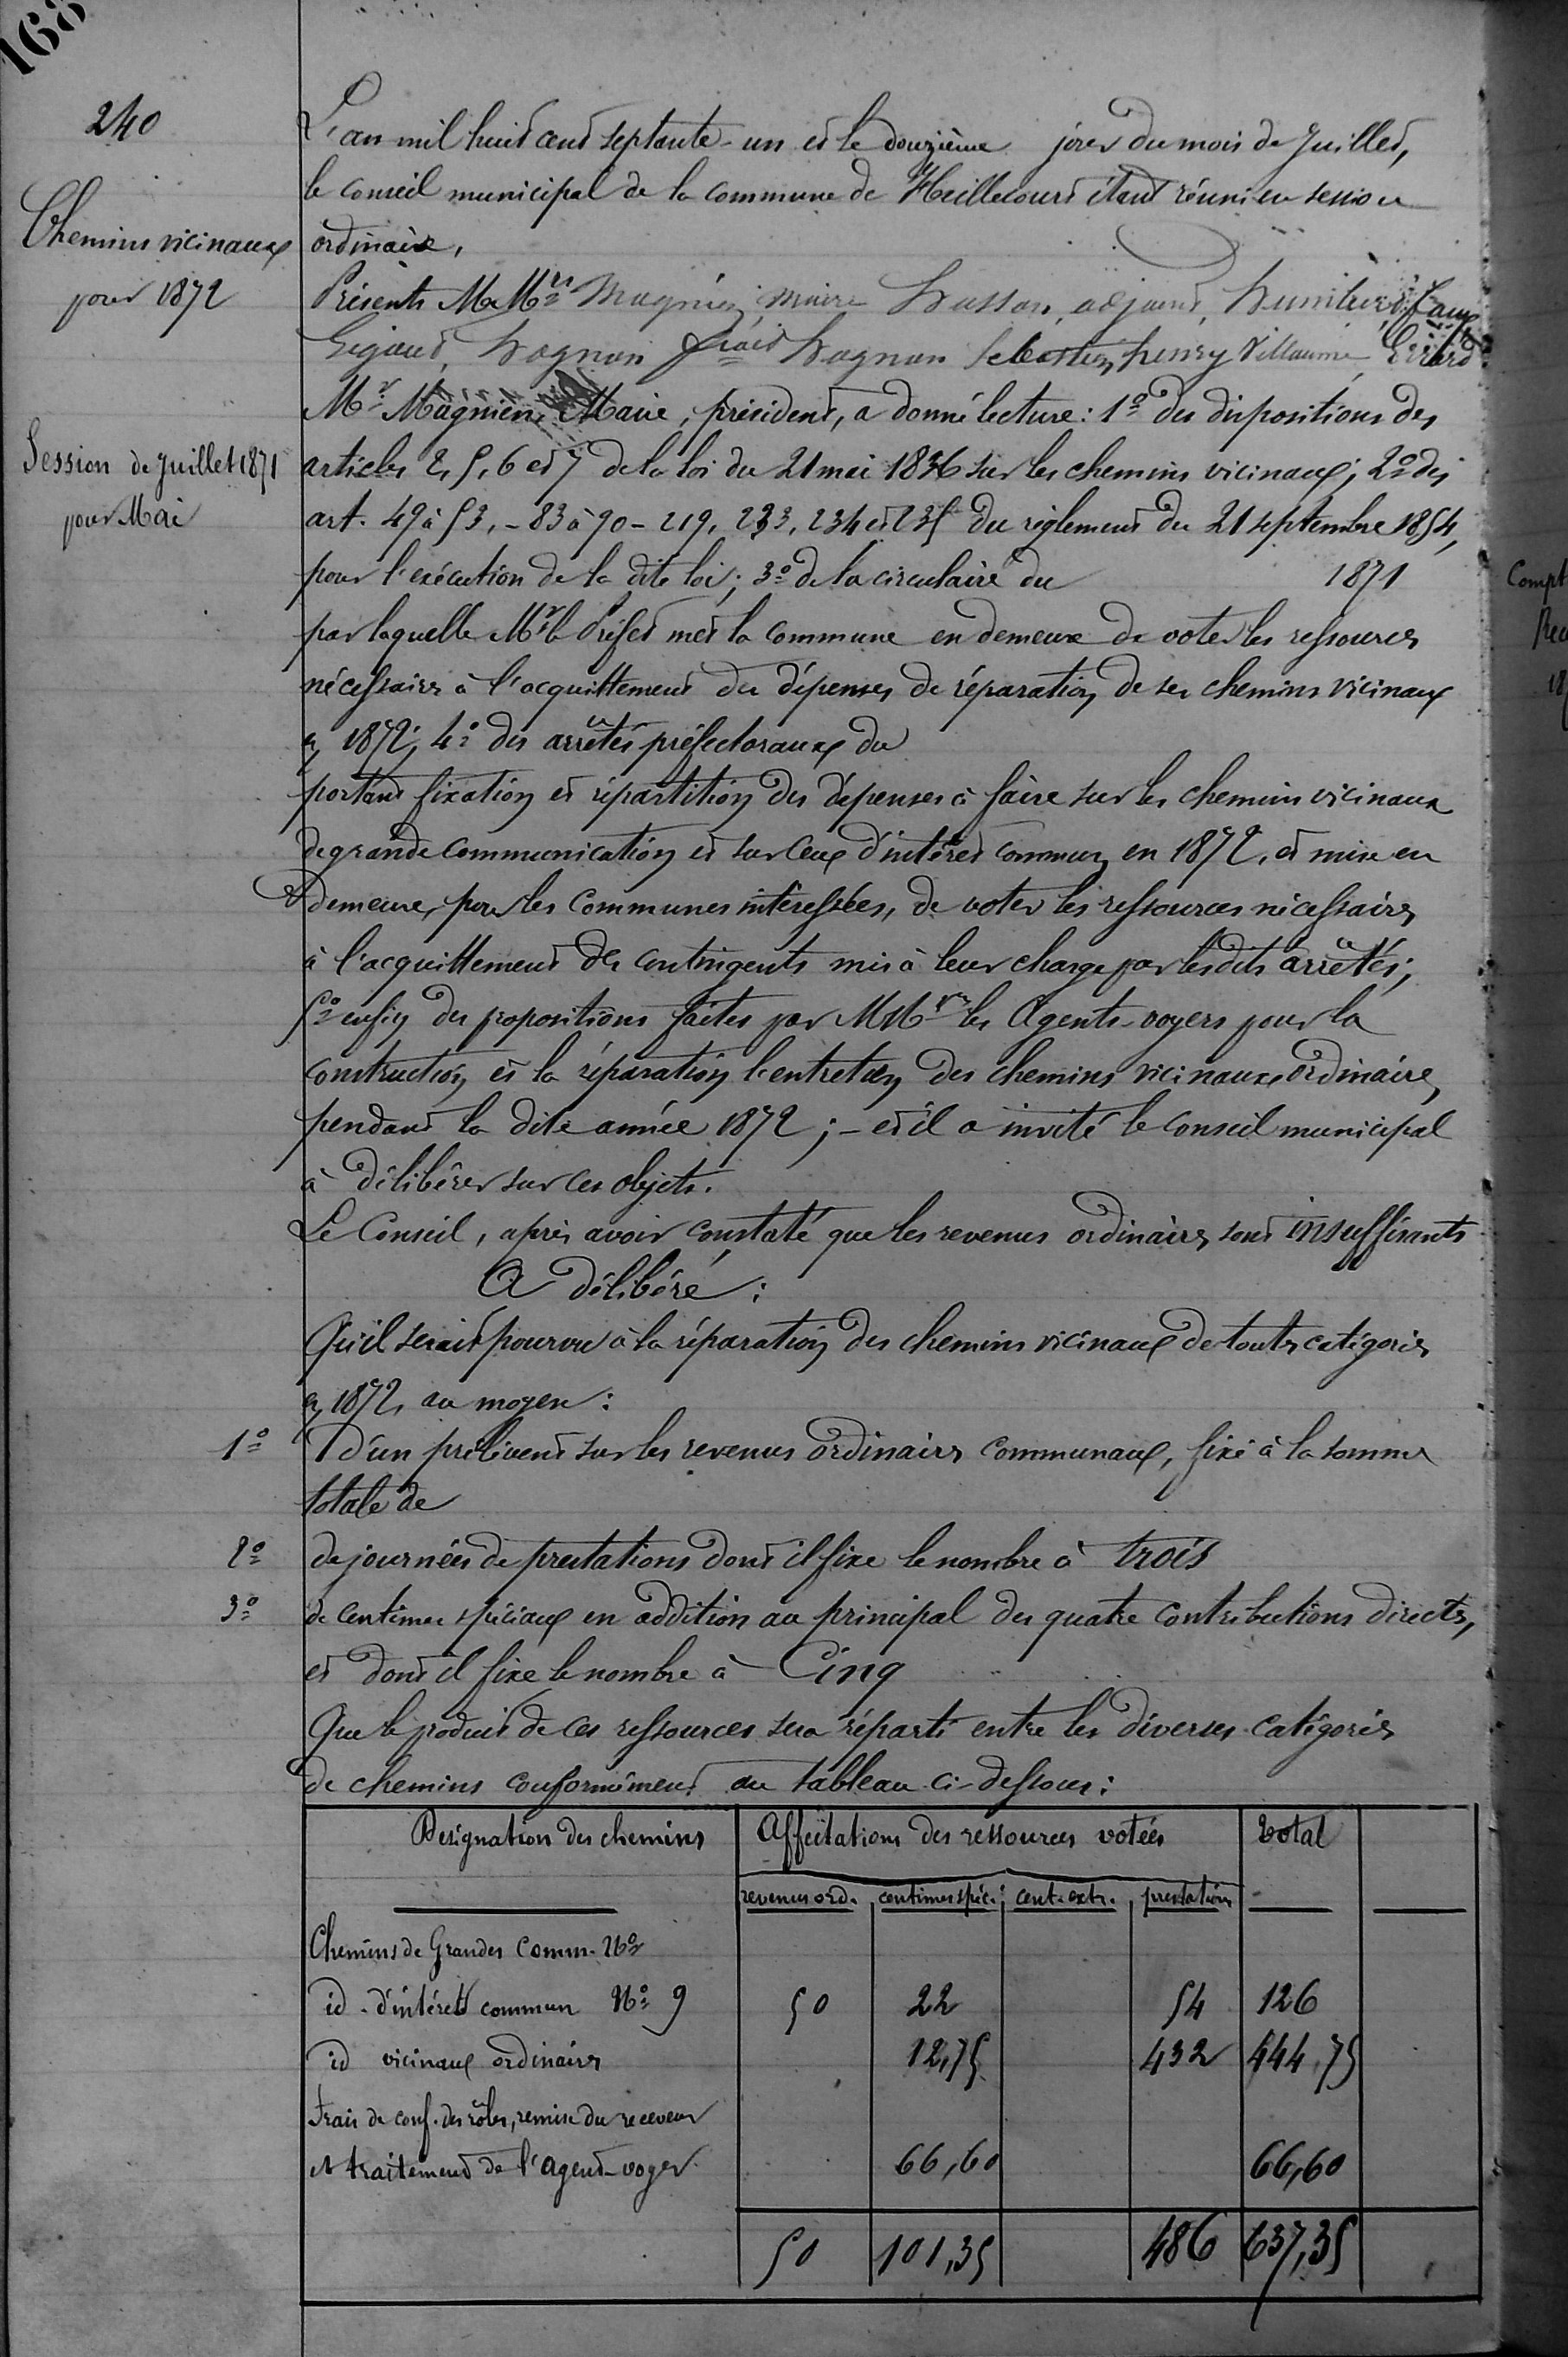 168
240
Chemins vicinaux
pour 1872
Session de Juillet 1871
pour Mai
L'an mil huit cent septante-un et le douzième jour du mois de Juillet,
le conseil municipal de la commune de Heillecourt étant réuni en session
ordinaire,
Présents MM.rs Magnien, Maire Husson, adjoint,
Gigout, Hognon Hognon Sebastien, henry Villaume, Gérard
Mr Magnien Maire, président, a donné lecture: 1º des dispositions des
articles 2, 5, 6 et 7 de la loi du 21 mai 1836 sur les chemins vicinaux; 2º des
art. 49 à 53, - 83 à 90 - 219, 233, 234 et 235 du règlement du 21 septembre 1854,
pour l'exécution de la dite loi; 3º de la circulaire du 1871
par laquelle Mr le Préfet met la commune en demeure de voter les ressources
nécessaires à l'acquittement des dépenses de réparation de ses chemins vicinaux
en 1872; 4º des arrêtés préfectoraux du
portant fixation et répartition des dépenses à faire sur les chemins vicinaux
de grande communication et sur ceux d'intérêt commun en 1872, et mise en
demeure, pour les communes intéressées, de voter les ressources nécessaires
à l'acquittement des contingents mis à leur charge par lesdits arrêtés;
5º enfin des propositions faites par MM.rs les Agents-voyers pour la
construction et la réparation l'entretien des chemins vicinaux ordinaires
pendant la dite année 1872; - et il a invité le conseil municipal
à délibérer sur ces objets.
Le Conseil, après avoir constaté que les revenus ordinaires sont insuffisants
A délibéré:
Qu'il serait pourvu à la réparation des chemins vicinaux de toutes catégories
en 1872, au moyen:
1º D'un prélèvent sur les revenus ordinaires communaux, fixé à la somme
totale de
2º de journées de prestations dont il fixe le nombre à trois
3º de centimes spéciaux en addition au principal des quatre contributions directes,
et dont il fixe le nombre à Cinq
Que le produit de ces ressources sera réparti entre les diverses catégories
de chemins conformément au tableau ci-dessous:
Désignation des chemins Affectations des ressources votées Total
revenus ord. centimes spéc. cent. extr. prestation
Chemins de Grandes Comm. Nº
id. d'intérêt commun Nº 9 50 22 54 126
id vicinaux ordinaires 12,75 432 444,75
Frais de conf. des rôles, remise du receveur
et traitement de l'Agent-voyer 66,60 66,60
50 101,35 486 637,35
Compt
Rec
18